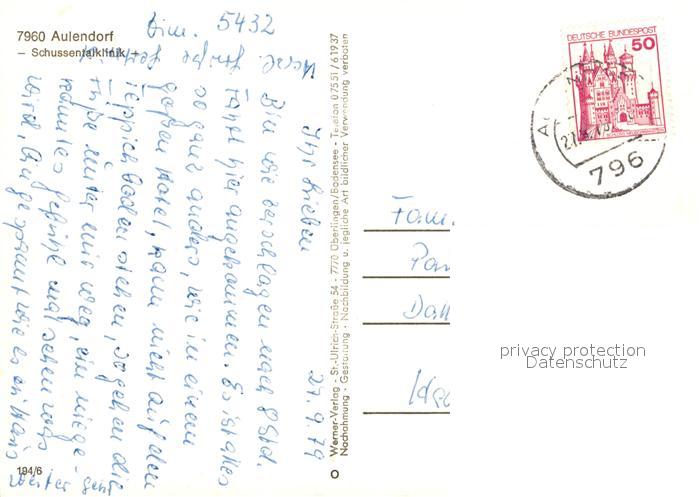 Zim. 5432
7960 Aulendorf
– Schussentalklinik –
27.9.79
Ihr Lieben
Bin wie zerschlagen nach 8 Std.
Fahrt hier angekommen. Es ist alles
so ganz anders, wie in einem
großen Hotel, kann nicht auf den
Teppichboden stehen, so gehen die
Füße unter mir weg, ein
Gefühl mal sehen was
wird. Angespannt wie es zu Haus
weiter geht
Herzl. Grüße
194/6
Werner-Verlag - St.-Ulrich-Straße 54 - 7770 Überlingen/Bodensee - Telefon 07551/61937
Nachahmung - Gestaltung - Nachbildung u. jegliche Art bildlicher Verwendung verboten
DEUTSCHE BUNDESPOST
50
796
Fam.
privacy protection
Datenschutz